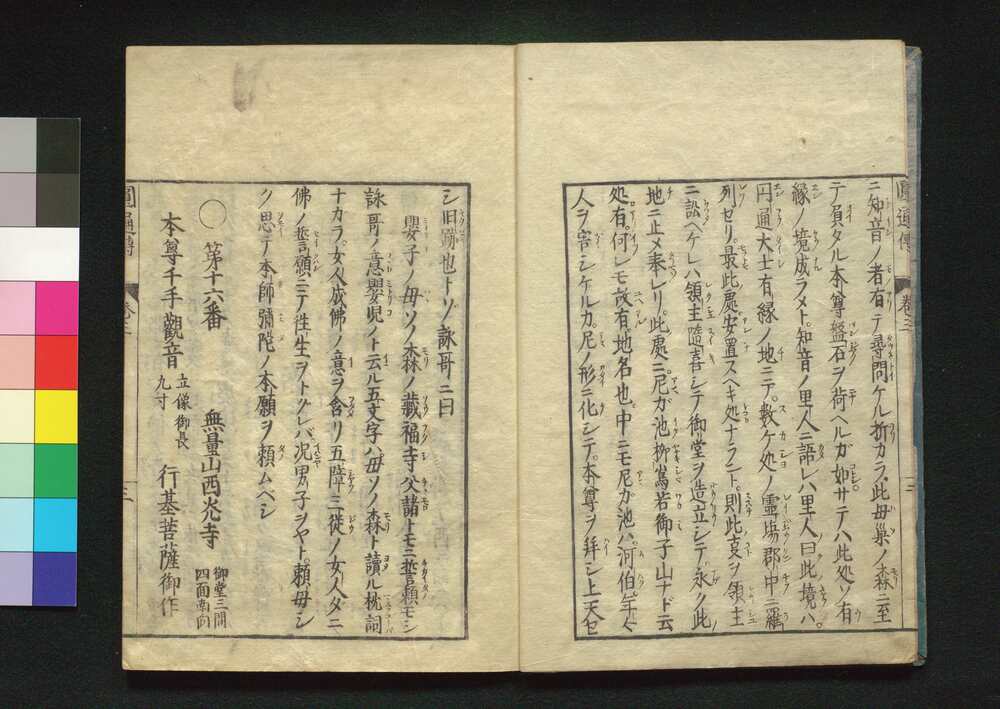 圓通傳 卷三 三
ニ知音ノ者有テ尋問ケル折カラ此母巣ノ森ニ至
テ負タル本尊盤石ヲ荷ヘルガ如サテハ此処ソ有
縁ノ境成ラメト知音ノ里人ニ語レハ里人曰此境ハ
円通大士有縁ノ地ニテ數ケ処ノ霊場郡中ニ羅
列セリ最此處安置スヘキ処ナラント則此㕝ヲ領主
ニ訟ヘケレハ領主隨喜シテ御堂ヲ造立シテ永ク此
地ニ止メ奉レリ此處ニ尼ガ池柳嶌若御子山ナド云
処有何レモ故有ル地名也中ニモ尼ガ池ハ河伯年々
人ヲ害シケルカ尼ノ形ニ化シテ本尊ヲ拜シ上天セ
シ旧跡也トソ詠哥ニ曰
嬰子ノ母ソノ森ノ藏福寺父諸トモニ誓頼モシ
詠哥ノ意嬰児ノト云ル五文字ハ母ソノ森ト讀ル枕詞
ナカラ女人成佛ノ意ヲ含リ五障三従ノ女人タニ
佛ノ誓願ニテ往生ヲトクレバ况男子ヲヤト頼母シ
ク思テ本師彌陀ノ本願ヲ頼ムヘシ
〇 第十六番 無量山西光寺 御堂三間四面南向
本尊千手觀音 立像御長九寸 行基菩薩御作
圓通傳 卷三 三